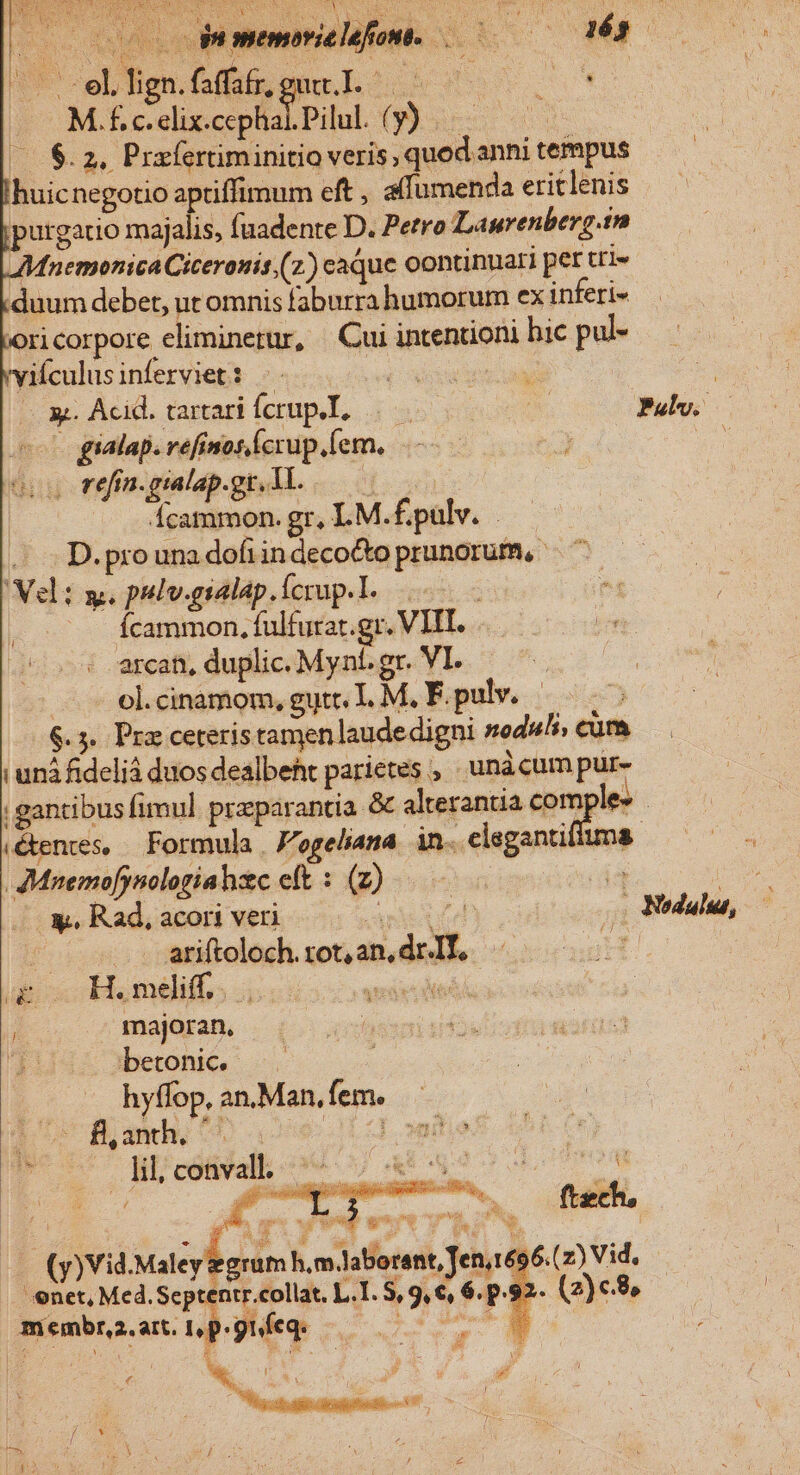 in memoriæ læſione. 163
ol. lign. ſaſſafr, gutt. I.
M. f. c. elix. cephal. Pilul. (y)
§. 2. Præſertim initio veris, quod anni tempus
huic negotio aptiſſimum eſt, aſſumenda erit lenis
purgatio majalis, ſuadente D. Petro Laurenberg. in
Mnemonica Ciceronis, (z) eaque continuari per tri-
duum debet, ut omnis ſaburra humorum ex inferi-
ori corpore eliminetur, Cui intentioni hic pul-
viſculus inſerviet:
℞. Acid. tartari ſcrup. I. Pulv.
gialap. reſinoſ. ſcrup. ſem.
reſin. gialap. gr. II.
ſcammon. gr. I. M. f. pulv.
D. pro una doſi in decocto prunorum,
Vel: ℞. pulv. gialap. ſcrup. I.
ſcammon. ſulfurat. gr. VIII.
arcan. duplic. Mynſ. gr. VI.
ol. cinamom. gutt. I. M. F. pulv.
§. 3. Præ ceteris tamen laude digni noduli, cùm
unâ fideliâ duos dealbent parietes, unà cum pur-
gantibus ſimul præparantia & alterantia comple-
ctentes. Formula Vogeliana in elegantiſſima
Mnemoſynologia hæc eſt: (z)
℞. Rad. acori veri Nodulus,
ariſtoloch. rot. an. dr. II.
H. meliſſ.
majoran.
betonic.
hyſſop. an. Man. ſem.
fl. anth.
lil. convall.
L 3 ſtæch.
(y) Vid. Maley ægrum h. m. laborant, Jen. 1696. (z) Vid.
onet. Med. Septentr. collat. L. I. S. 9. c. 6. p. 92. (z) c. 8.
membr. 2. art. 1. p. 91. ſeq.